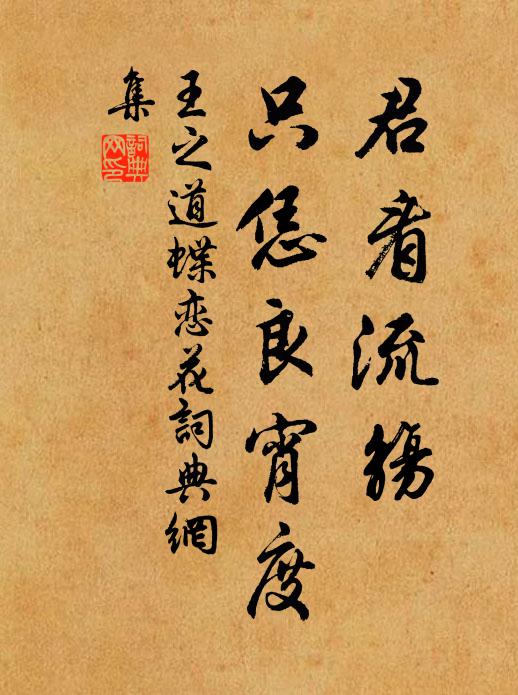 君看流觴
只恁良宵度
王之道蝶恋花詞典網
集
詞典
网印